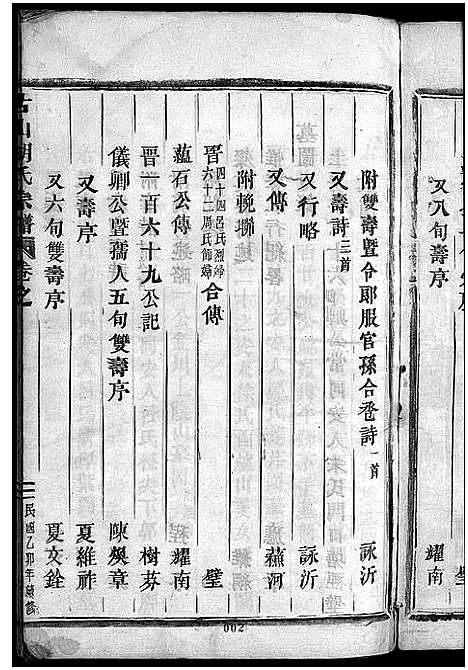 又八旬壽序
耀南
附雙壽暨令郎服官孫合巹詩一首
詠沂
又壽詩三首
又行略
詠沂
又傳
蘓河
附輓聯
晋四十四呂氏烈婦六十二周氏節婦合傳
璧
蘊石公傳
耀南
晋一百六十九公記
樹芬
儀卿公暨孺人五旬雙壽序
陳奐章
又壽序
夏維祚
又六旬雙壽序
夏文銓
山胡氏宗譜
卷之
民國乙卯年續修
002